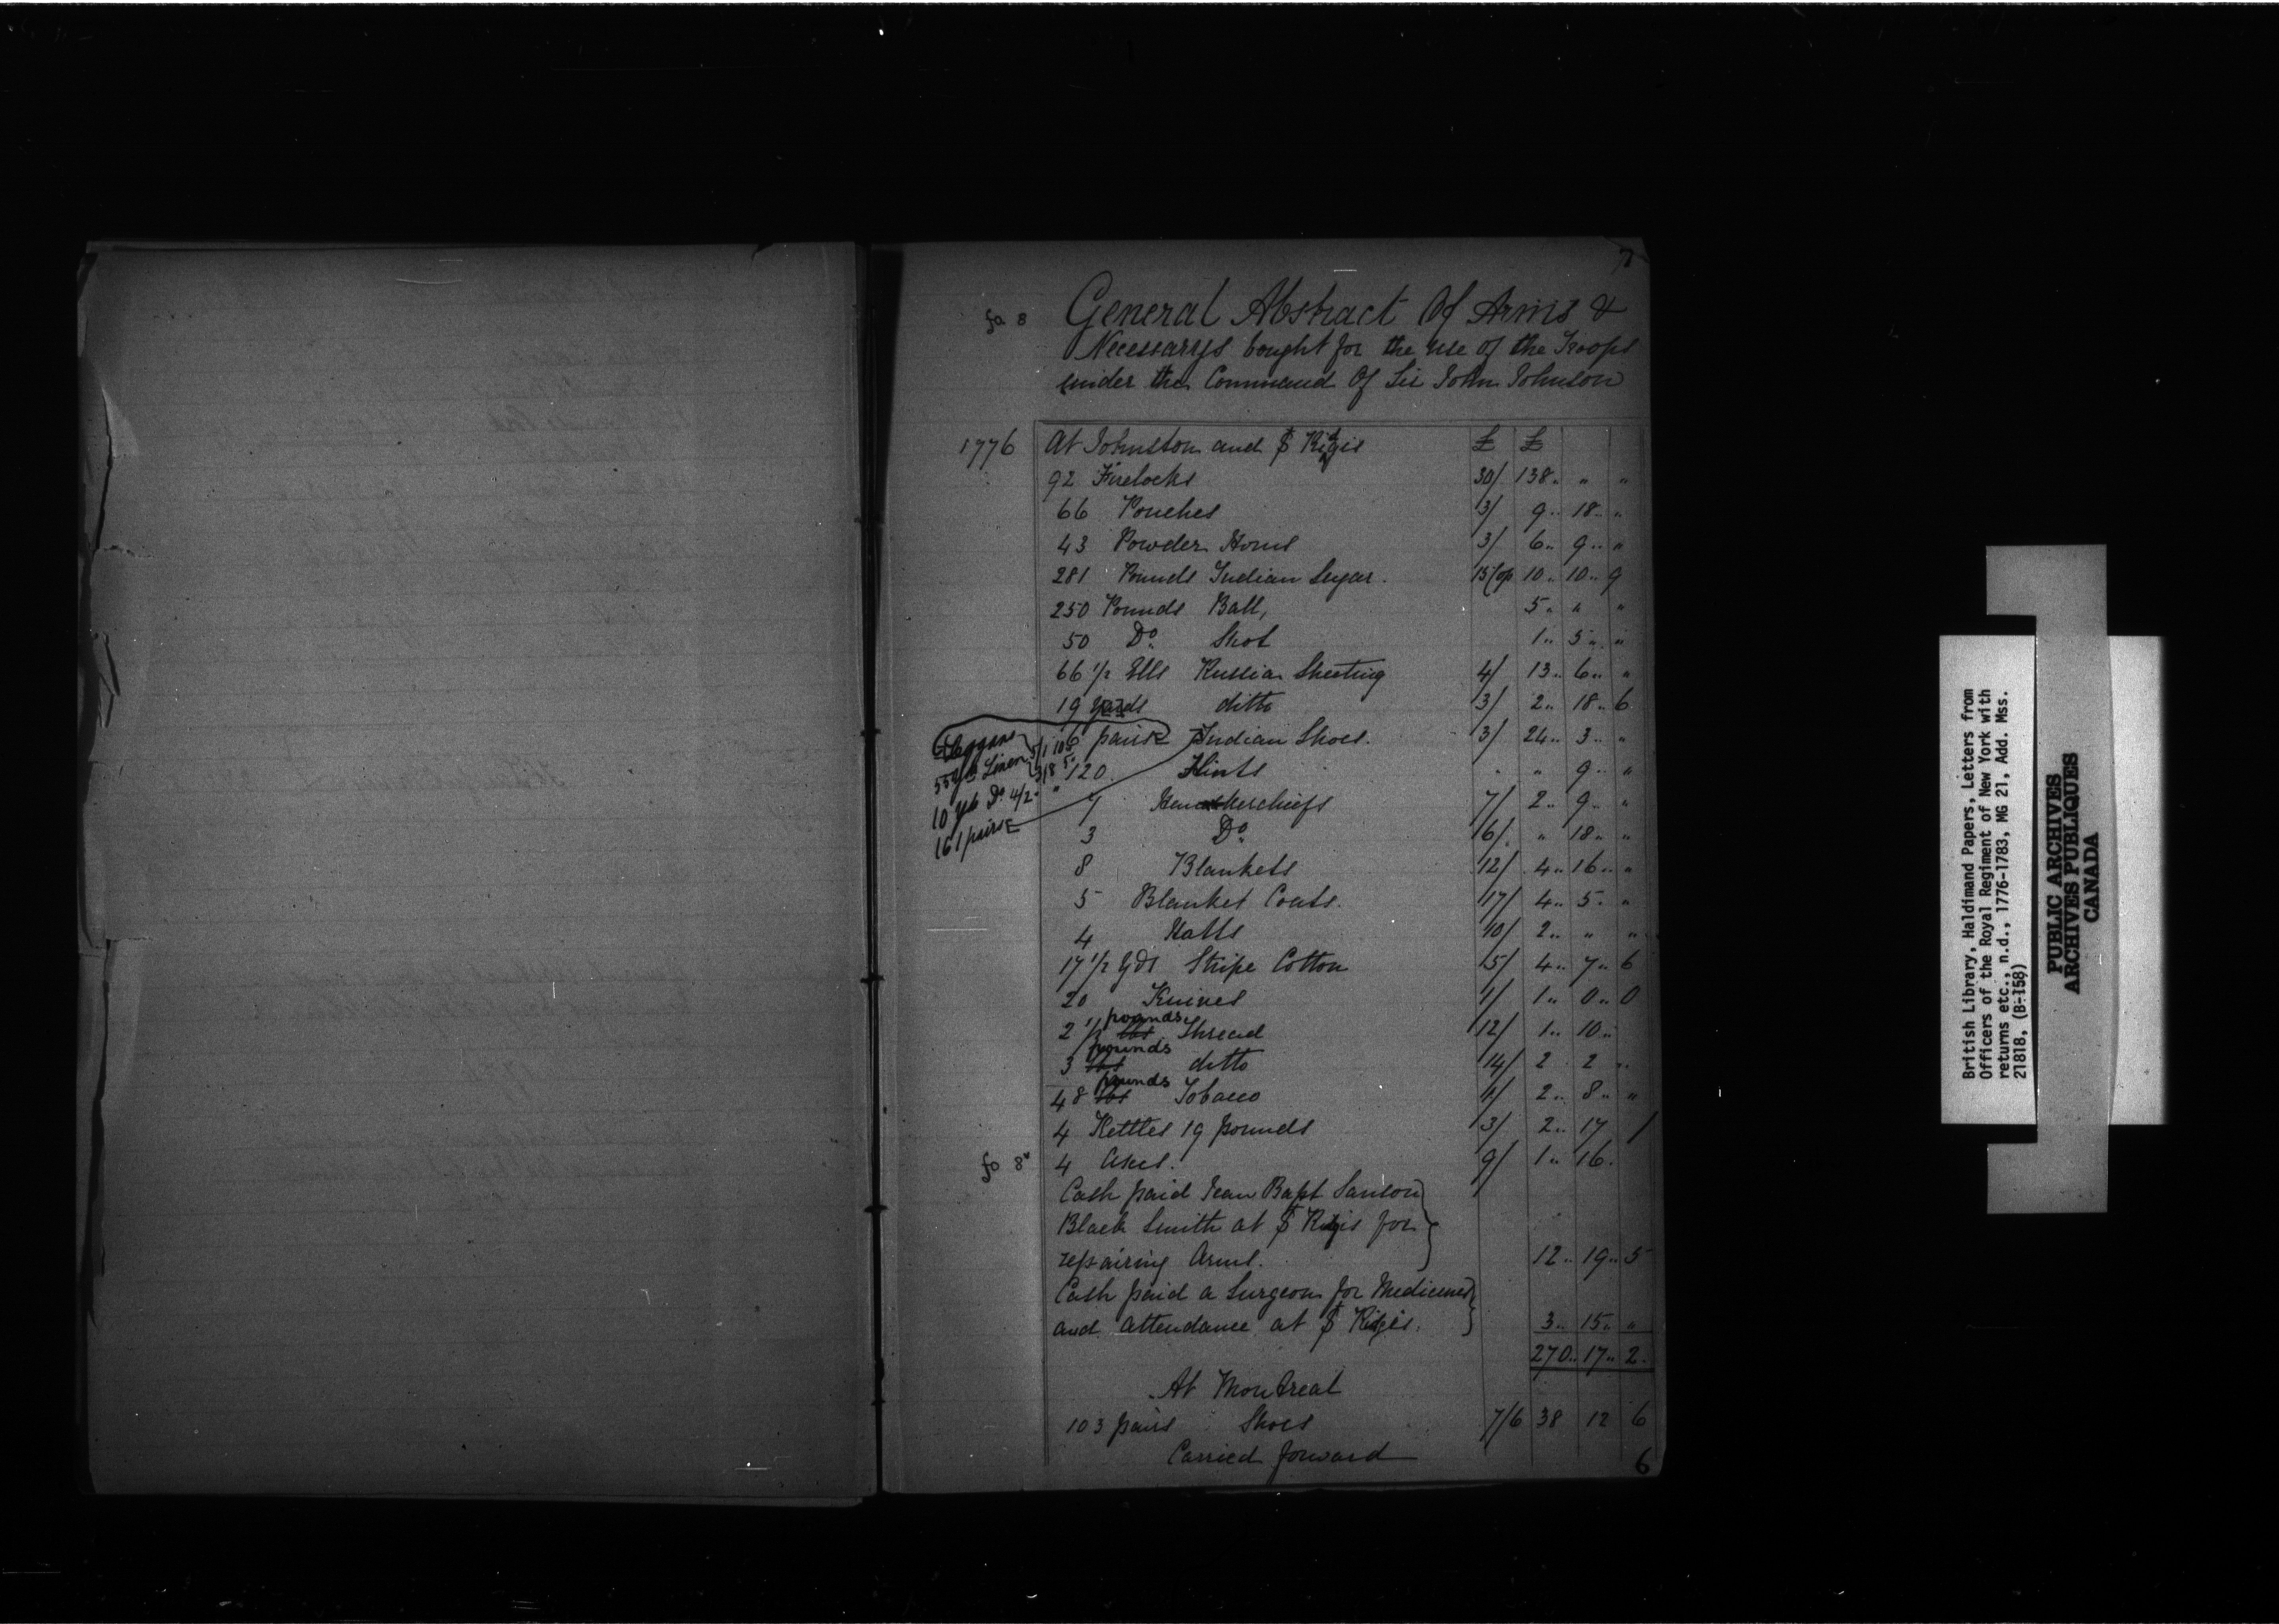 7
fo 8 General Abstract Of Arms &
Necessarys bought for the use of the Troops
under the Command Of Sir John Johnson
1776 At Johnston and St Regis £ £
92 Firelocks 30/ 138 .. " "
66 Pouches 3/ 9 .. 18 .. "
43 Powder Horns 3/ 6 .. 9 .. "
281 Pounds Indian Sugar. 10 .. 10 .. 9
250 Pounds Ball, 5 .. " "
50 Do. Shot 1 .. 5 .. "
66 1/2 Ells Russia Sheeting 4/ 13 .. 6 .. "
19 Yards ditto 3/ 2 .. 18 .. 6
6 pairs Indian Shoes. 3/ 24 .. 3 .. "
Leggans 5/ 1 10
55 Yds Linen 3/ 8 5
10 Yds Do 4/ 2 "
161 pairs
120 Flints " 9 .. "
7 Handkerchiefs 7/ 2 .. 9 .. "
3 Do. 6/ " 18 .. "
8 Blankets 12/ 4 .. 16 .. "
5 Blanket Coats. 17/ 4 .. 5 .. "
4 Hatts 10/ 2 .. " "
17 1/2 Yds Stripe Cotton 5/ 4 .. 7 .. 6
20 Knives 1/ 1 .. 0 .. 0
2 1/2 lbs pounds Thread 12/ 1 .. 10 ..
3 lbs pounds ditto 14/ 2 2 ..
48 lbs pounds Tobacco 1/ 2 .. 8 .. "
4 Kettles 19 pounds 3/ 2 .. 17 /
fo 8v 4 Axes. 9/ 1 .. 16.
Cash paid Jean Bapt Sanson
Black Smith at St Regis for
repairing Arms. 12 .. 19 .. 5
Cash paid a Surgeon for Medicines
and attendance at St Regis. 3 .. 15 .. "
270 .. 17 .. 2.
At Montreal
103 pairs Shoes 7/6 38 12 6
Carried forward
6
British Library, Haldimand Papers, Letters from
Officers of the Royal Regiment of New York with
returns etc., n.d., 1776-1783, MG 21, Add. Mss.
21818, (B-158)
PUBLIC ARCHIVES
ARCHIVES PUBLIQUES
CANADA